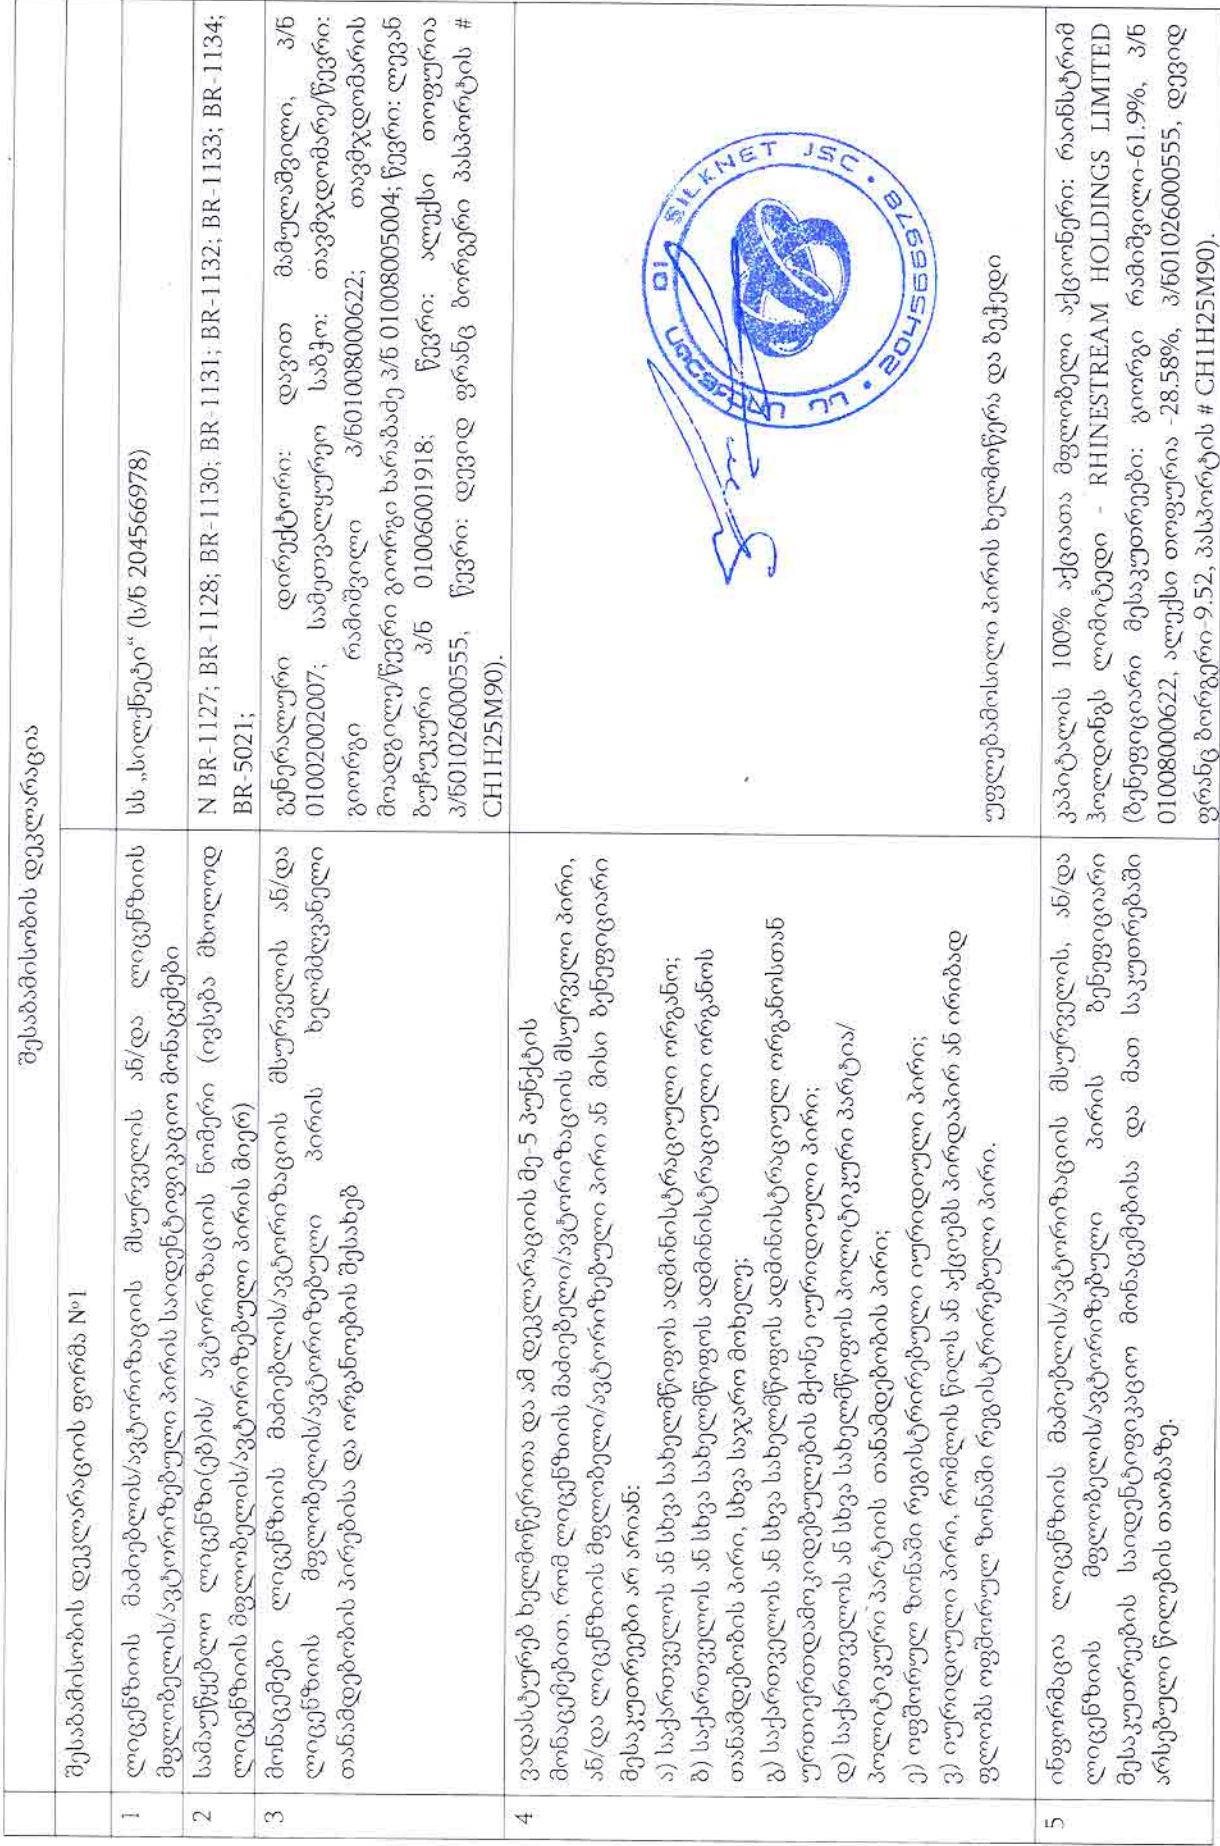 შესაბამისობის დეკლარაცია
შესაბამისობის დეკლარაციის ფორმა №1
1
ლიცენზიის მაძიებლის/ავტორიზაციის მსურველის ან/და ლიცენზიის
მფლობელის/ავტორიზებული პირის საიდენტიფიკაციო მონაცემები
სს „სილქნეტი“ (ს/ნ 204566978)
2
სამაუწყებლო ლიცენზი(ებ)ის/ ავტორიზაციის ნომერი (ივსება მხოლოდ
ლიცენზიის მფლობელის/ავტორიზებული პირის მიერ)
N BR-1127; BR-1128; BR-1130; BR-1131; BR-1132; BR-1133; BR-1134;
BR-5021;
3
მონაცემები ლიცენზიის მაძიებლის/ავტორიზაციის მსურველის ან/და
ლიცენზიის მფლობელის/ავტორიზებული პირის ხელმძღვანელი
თანამდებობის პირებისა და ორგანოების შესახებ
გენერალური დირექტორი: დავით მამულაშვილი, პ/ნ
01002002007; სამეთვალყურეო საბჭო: თავმჯდომარე/წევრი:
გიორგი რამიშვილი პ/ნ01008000622; თავმჯდომარის
მოადგილე/წევრი გიორგი ხარაბაძე პ/ნ 01008005004; წევრი: ლევან
ბუჩუკური პ/ნ 01006001918; წევრი: ალექსი თოფურია
პ/ნ01026000555, წევრი: დევიდ ფრანც ბორგერი პასპორტის #
CH1H25M90).
4
ვადასტურებ ხელმოწერითა და ამ დეკლარაციის მე-5 პუნქტის
მონაცემებით, რომ ლიცენზიის მაძიებელი/ავტორიზაციის მსურველი პირი,
ან/და ლიცენზიის მფლობელი/ავტორიზებული პირი ან მისი ბენეფიციარი
მესაკუთრეები არ არიან:
ა) საქართველოს ან სხვა სახელმწიფოს ადმინისტრაციული ორგანო;
ბ) საქართველოს ან სხვა სახელმწიფოს ადმინისტრაციული ორგანოს
თანამდებობის პირი, სხვა საჯარო მოხელე;
გ) საქართველოს ან სხვა სახელმწიფოს ადმინისტრაციულ ორგანოსთან
ურთიერთდამოკიდებულების მქონე იურიდიული პირი;
დ) საქართველოს ან სხვა სახელმწიფოს პოლიტიკური პარტია/
პოლიტიკური პარტიის თანამდებობის პირი;
ე) ოფშორულ ზონაში რეგისტრირებული იურიდიული პირი;
ვ) იურიდიული პირი, რომლის წილს ან აქციებს პირდაპირ ან ირიბად
ფლობს ოფშორულ ზონაში რეგისტრირებული პირი.
სს სილქნეტი • 204566978 • SILKNET JSC
უფლებამოსილი პირის ხელმოწერა და ბეჭედი
5
ინფორმაცია ლიცენზიის მაძიებლის/ავტორიზაციის მსურველის, ან/და
ლიცენზიის მფლობელის/ავტორიზებული პირის ბენეფიციარი
მესაკუთრეების საიდენტიფიკაციო მონაცემებისა და მათ საკუთრებაში
არსებული წილების თაობაზე.
კაპიტალის 100% აქციათა მფლობელი აქციონერი: რაინსტრიმ
ჰოლდინგს ლიმიტედი - RHINESTREAM HOLDINGS LIMITED
(ბენეფიციარი მესაკუთრეები: გიორგი რამიშვილი-61.9%, პ/ნ
01008000622, ალექსი თოფურია -28.58%, პ/ნ01026000555, დევიდ
ფრანც ბორგერი-9.52, პასპორტის # CH1H25M90).